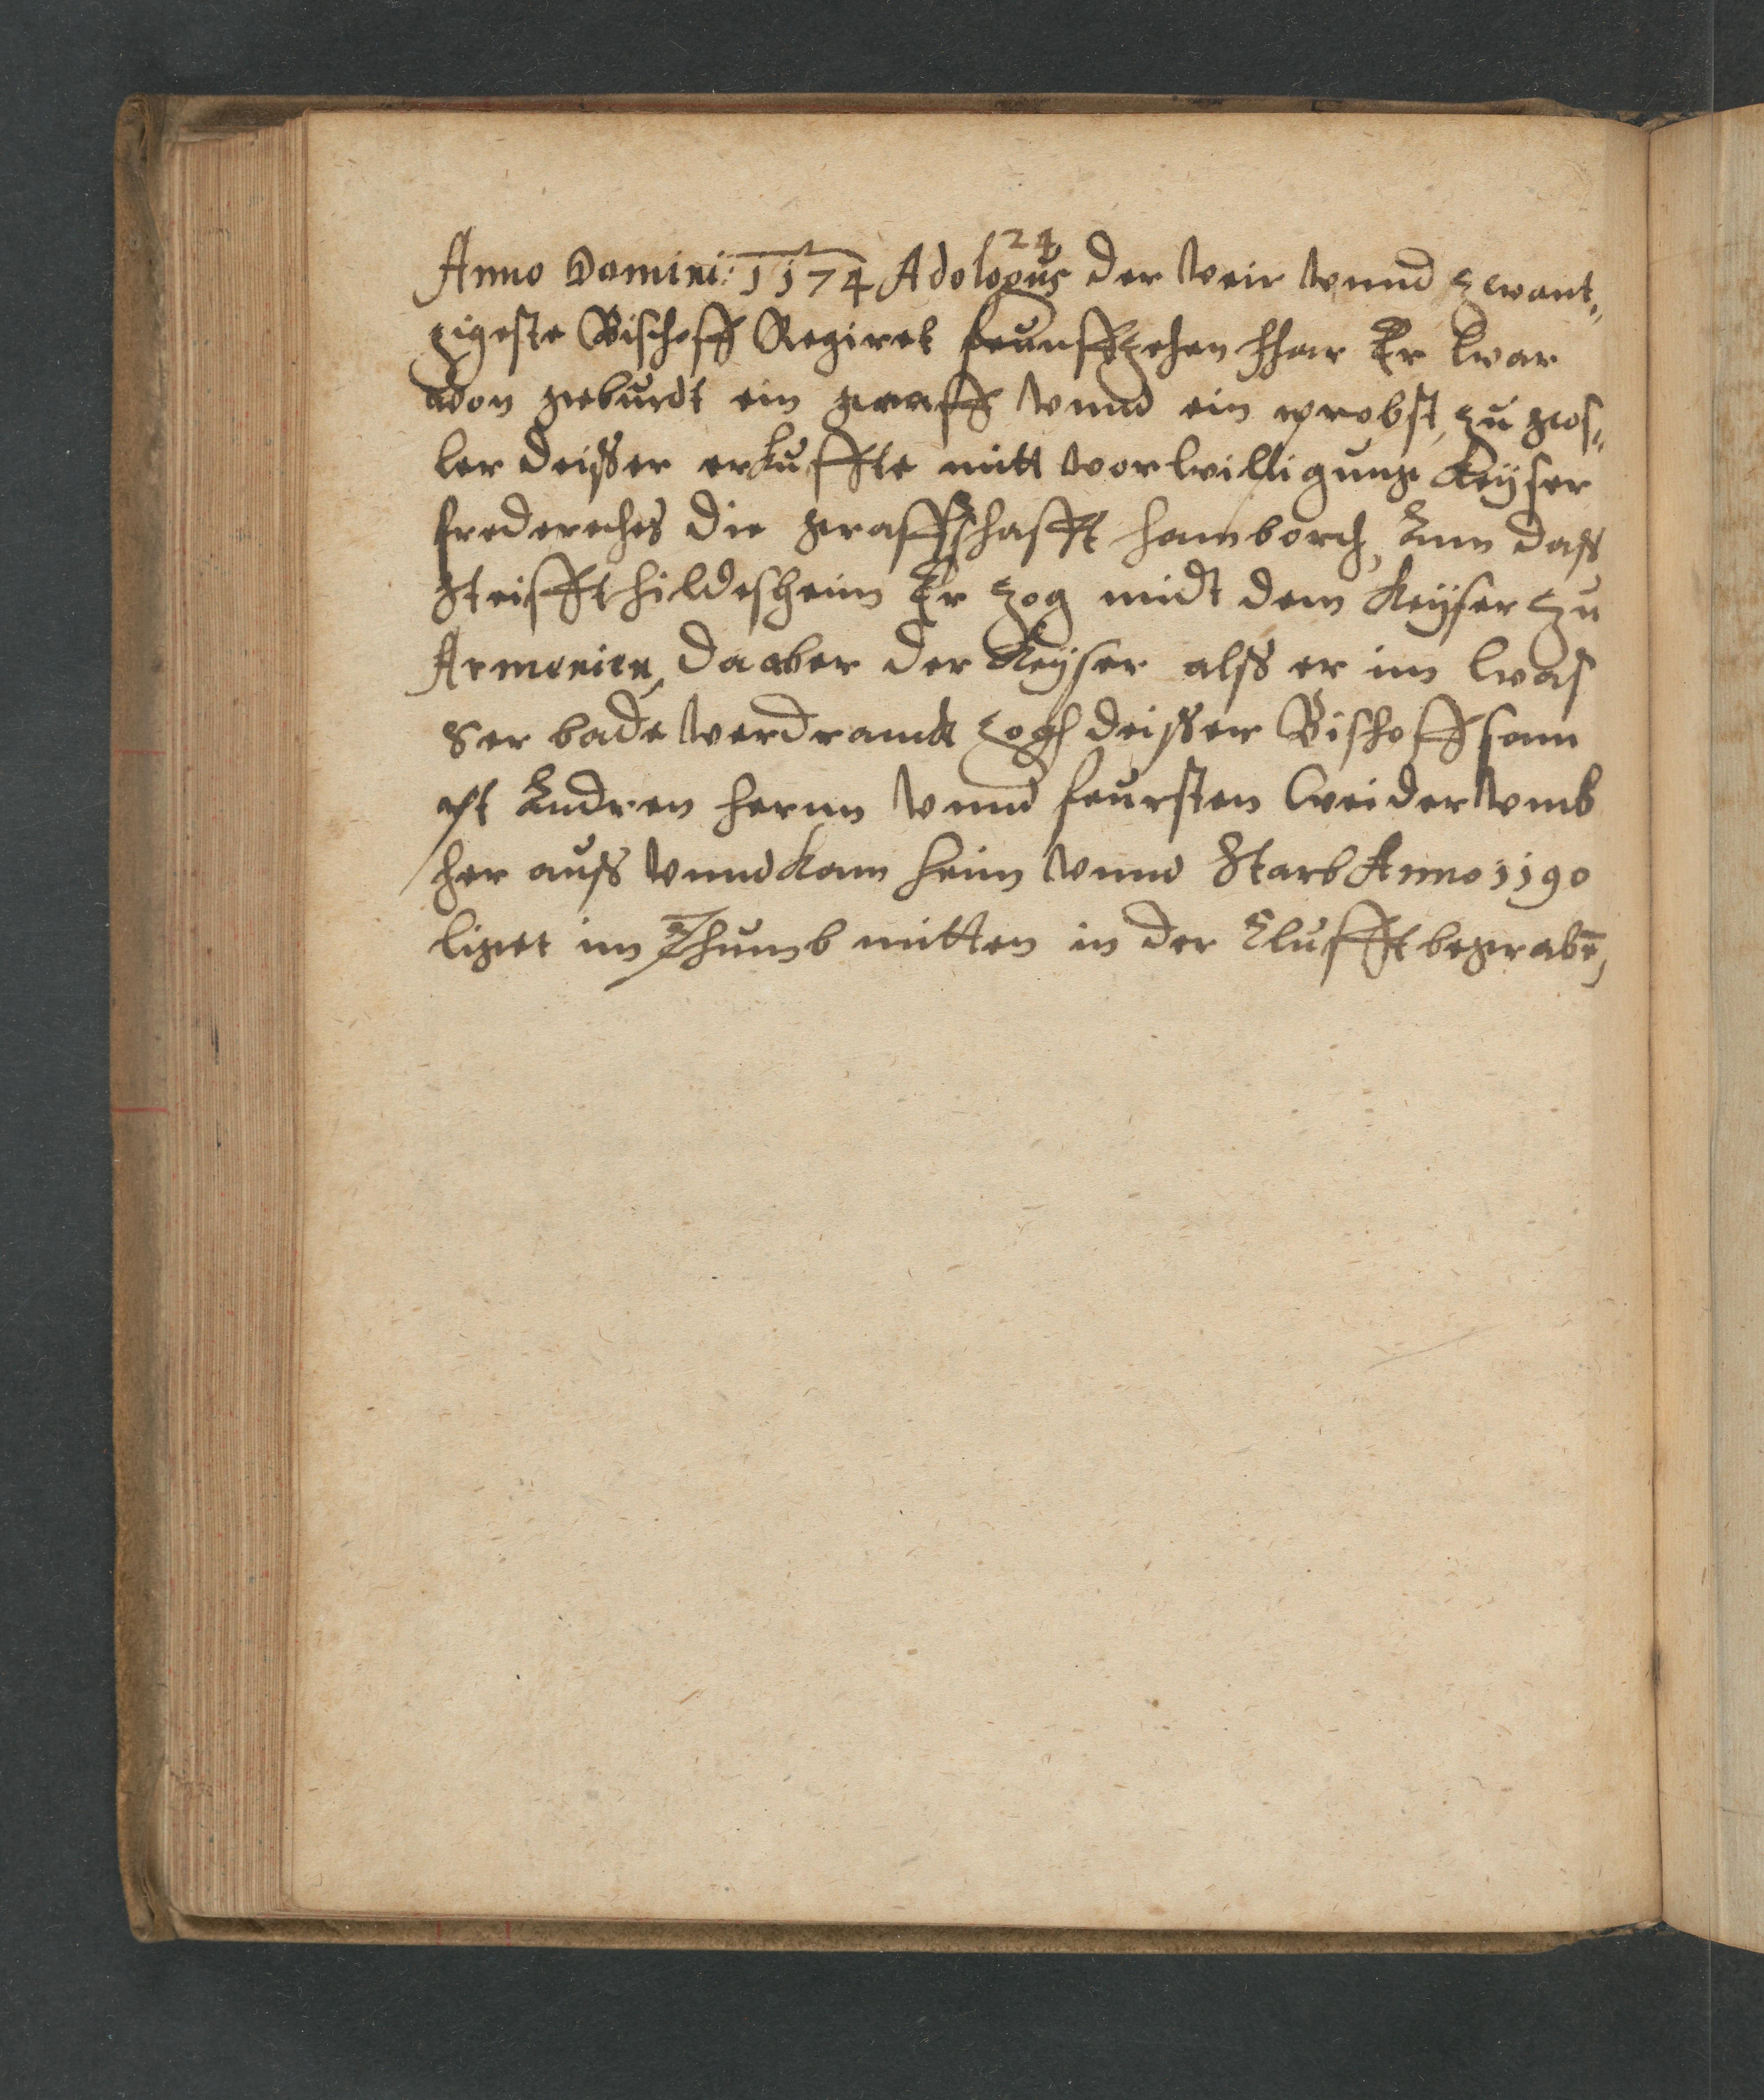 24
Anno Domini: 1174 Adolopus der veir vnnd zwant„
zigeste Bischoff Regiret feunffzehen Jhar Er war
von geburdt ein graff vnnd ein probst, zu gos„
ler deisser erkuffte mitt vorwilligung Keyser
fredereches die graffschafft hamborch, Ann dass
Steifft hildesheim Er zog midt dem Keyser zu
Armenien, da aber der Keyser alss er im was
ser bade verdranck zogh deisser Bischoff sam
pt Andren hernn vnnd feursten weider vmb
her auss vnnd kam heim vnnd Starb Anno 1190
liget im Thumb mitten in derClufft begrabē,